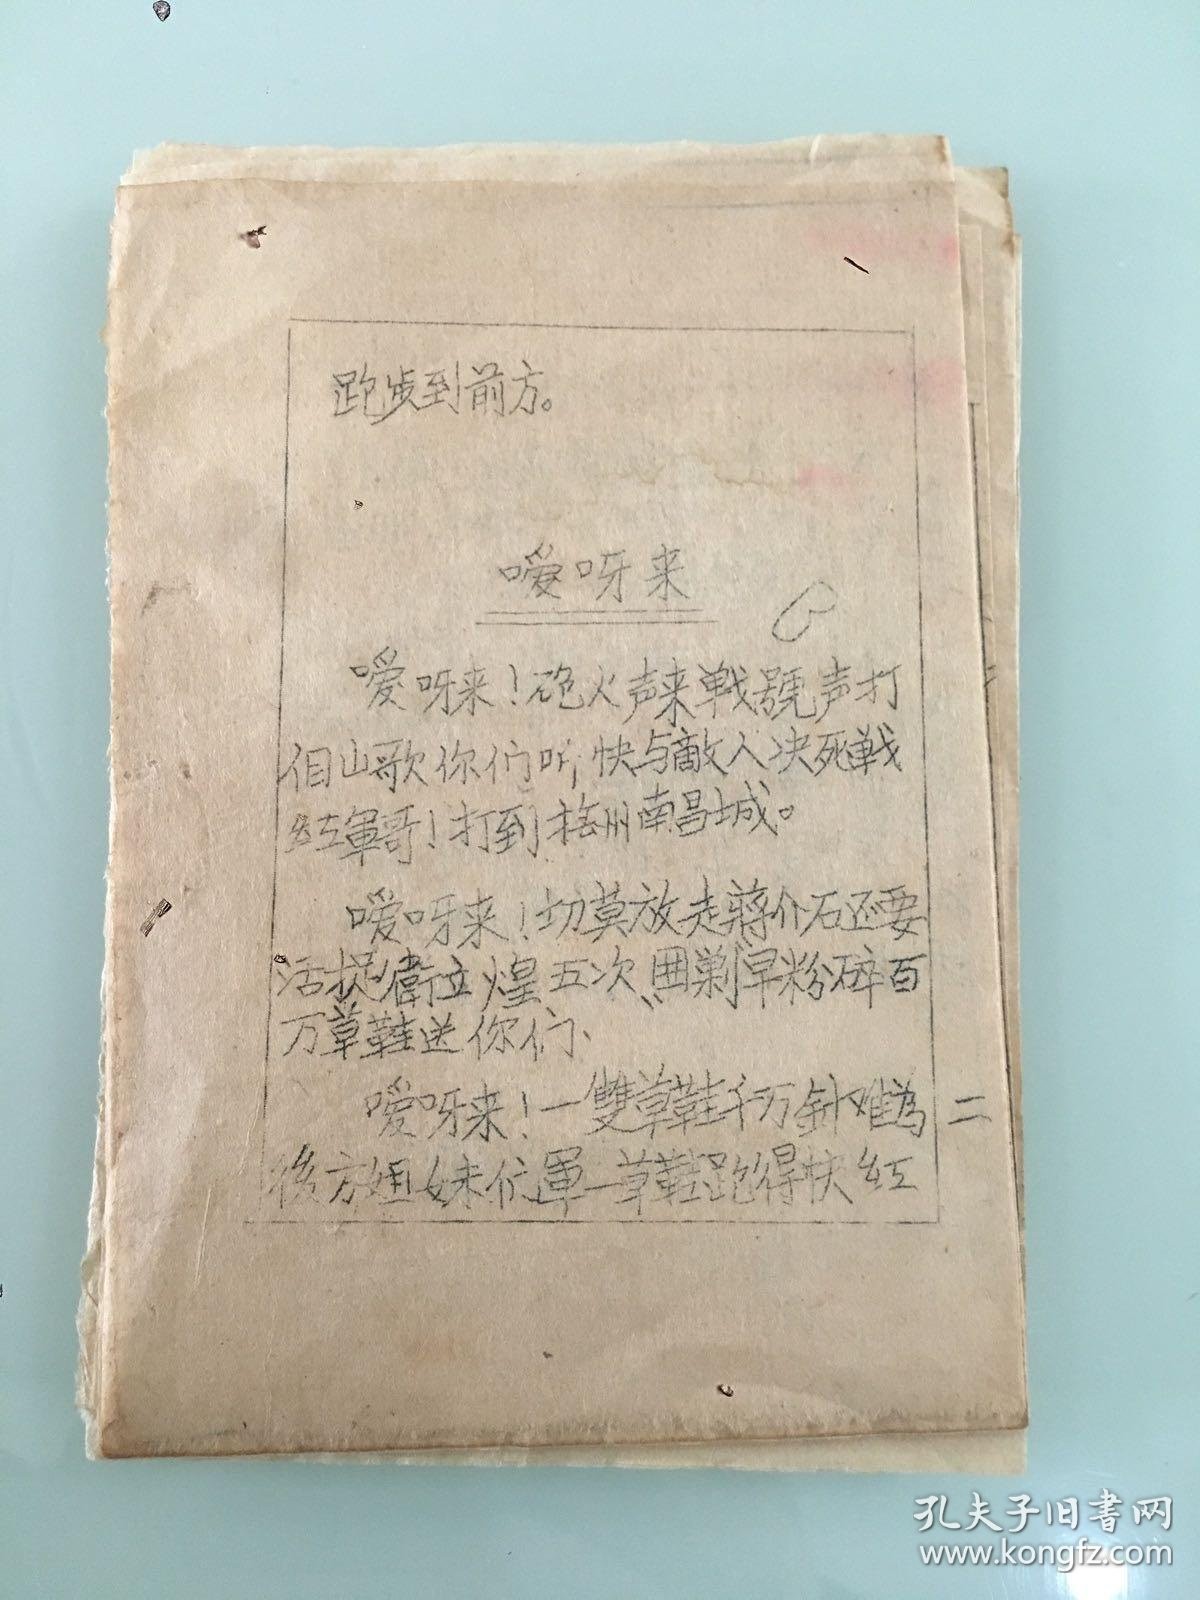 跑步到前方。
嗳呀来
嗳呀来！砲火声来戦號声打
但山歌你们听，快与敵人决死戦
红軍哥！打到 州南昌城。
嗳呀来！切莫放走蔣介石还要
活捉衛立煌五次"囲剿"早粉碎百
万草鞋送你们、
嗳呀来！一雙草鞋千万针难為
後方姐妹们軍一草鞋跑得快红
二
孔夫子旧書网
www.kongfz.com